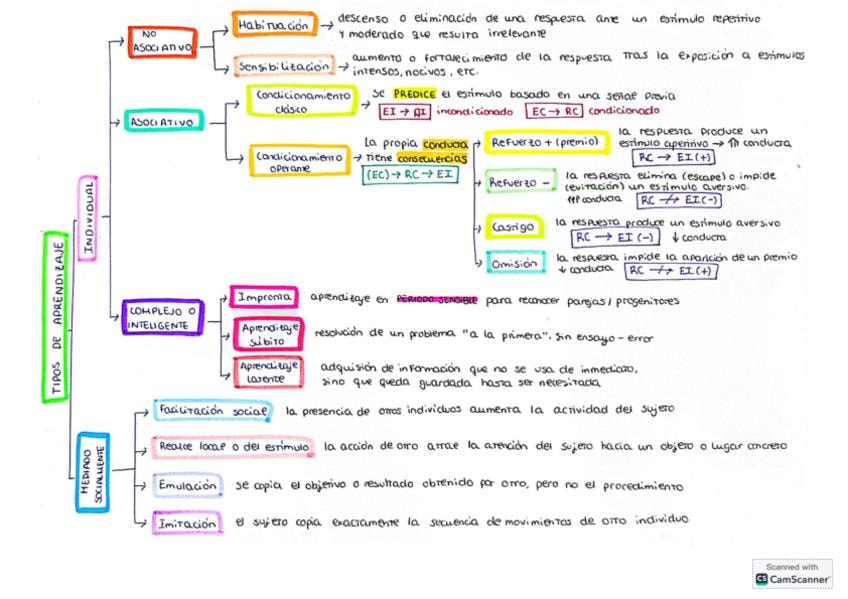 TIPOS DE APRENDIZAJE
INDIVIDUAL
NO
ASOCIATIVO
Habituación
descenso o eliminación de una respuesta ante un estímulo repetitivo
y moderado que resulta irrelevante
Sensibilización
aumento o fortalecimiento de la respuesta tras la exposición a estímulos
intensos, nocivos, etc.
ASOCIATIVO
Condicionamiento
clásico
se PREDICE el estímulo basado en una señal previa
EI → RI incondicionado EC → RC condicionado
Condicionamiento
operante
La propia conducta
tiene consecuencias
(EC) → RC → EI
Refuerzo + (premio)
la respuesta produce un
estímulo apetitivo → ↑↑ conducta
RC → EI (+)
Refuerzo -
la respuesta elimina (escape) o impide
(evitación) un estímulo aversivo.
↑↑ conducta RC -/→ EI (-)
Castigo
la respuesta produce un estímulo aversivo
RC → EI (-) ↓ conducta
Omisión
la respuesta impide la aparición de un premio
↓ conducta RC -/→ EI (+)
COMPLEJO O
INTELIGENTE
Impronta
aprendizaje en PERIODO SENSIBLE para reconocer parejas / progenitores
Aprendizaje
súbito
resolución de un problema "a la primera". Sin ensayo - error
Aprendizaje
latente
adquisión de información que no se usa de inmediato,
sino que queda guardada hasta ser necesitada
MEDIADO
SOCIALMENTE
Facilitación social
la presencia de otros individuos aumenta la actividad del sujeto
Realce local o del estímulo
la acción de otro atrae la atención del sujeto hacia un objeto o lugar concreto
Emulación
se copia el objetivo o resultado obtenido por otro, pero no el procedimiento
Imitación
el sujeto copia exactamente la secuencia de movimientos de otro individuo
Scanned with
CS CamScanner